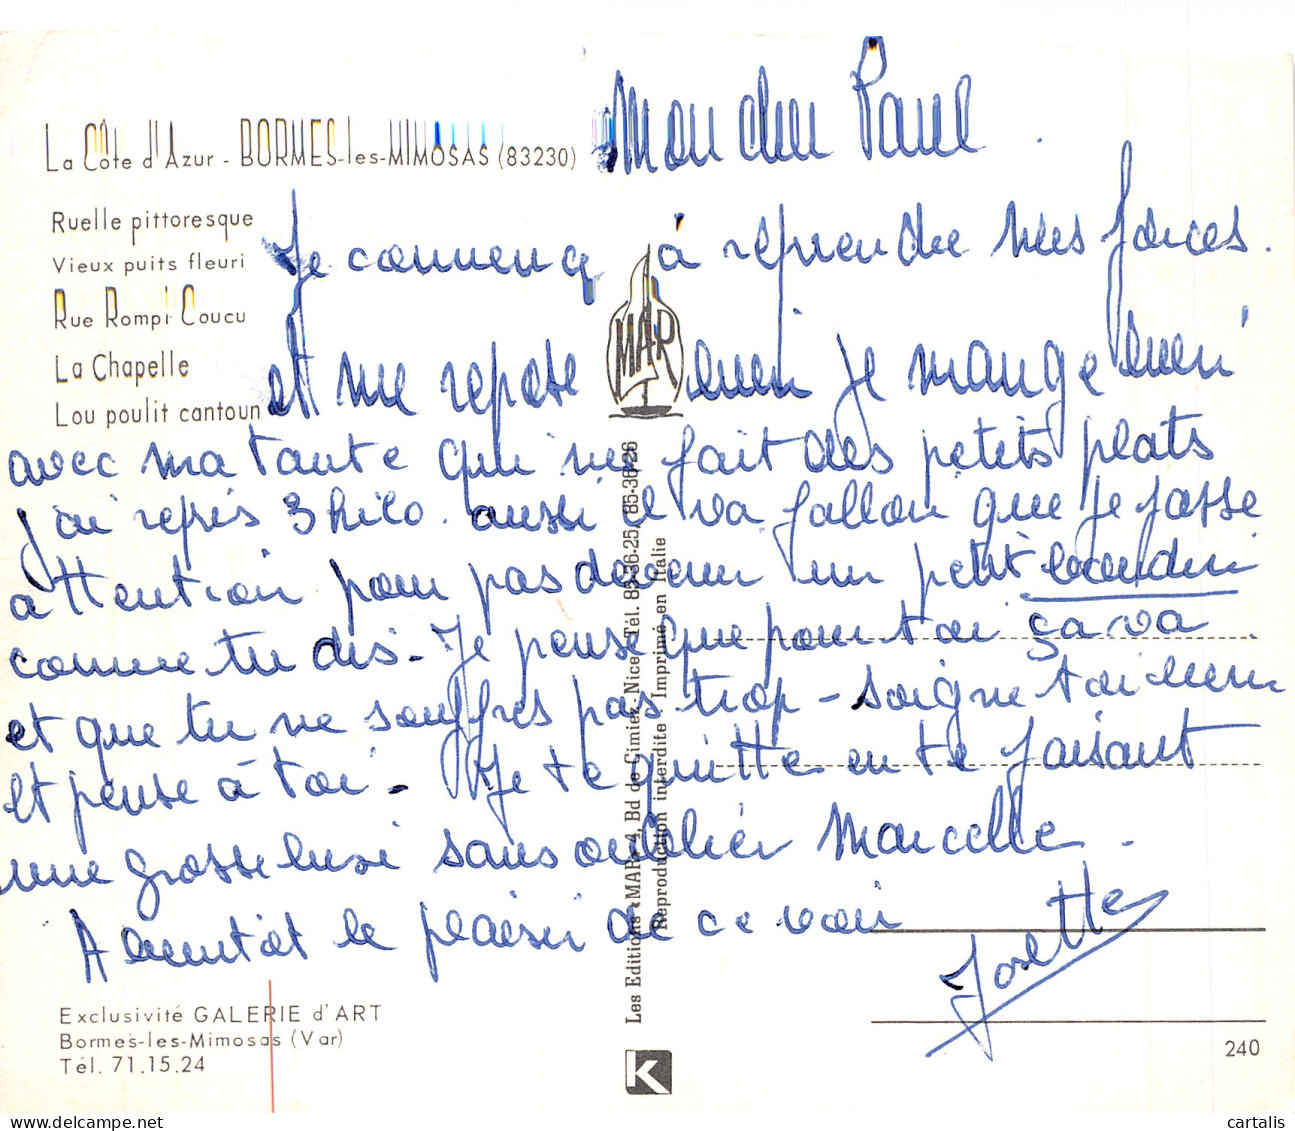 La Côte d'Azur - BORMES-les-MIMOSAS (83230)
Ruelle pittoresque
Vieux puits fleuri
Rue Rompi Coucu
La Chapelle
Lou poulit cantoun
Mon cher Paul
Je commence à reprendre mes forces.
et me repose bien je mange bien
avec ma tante qui me fait des petits plats
j'ai repris 3 kilo. aussi il va falloir que je fasse
attention pour pas devenir un petit boudin
comme tu dis - Je pense que pour toi ça va
et que tu ne souffres pas trop - soigne toi bien
et pense à toi - Je te quitte en te faisant
une grosse bise sans oublier Marcelle -
A bientôt le plaisir de ce voir
Josette
MAR
Les Editions «MAR», 4, Bd de Cimiez Nice Tél. 85-36-25 / 85-36-26
Reproduction interdite - Imprimé en Italie
Exclusivité GALERIE d'ART
Bormes-les-Mimosas (Var)
Tél. 71.15.24
K
240
cartalis
www.delcampe.net